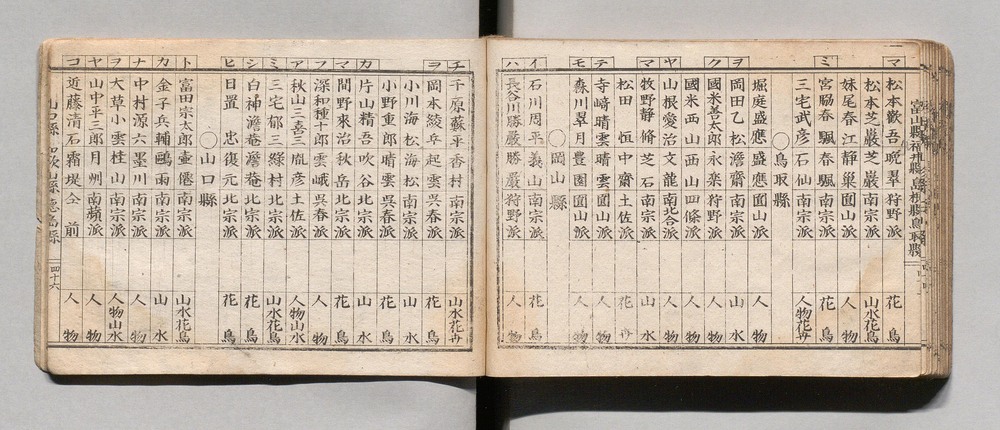 マ 松本歡吾 晩翠 狩野派 花鳥
松本芝巌 芝巌 南宗派 山水花鳥
妹尾春江 静巣 圓山派 人物
ミ 宮脇春 颿 春颿 南宗派 花鳥
三宅武彦 石仙 南宗派 人物花卉
〇鳥取縣
堀庭盛應 盛應 圓山派 人物
ヲ 岡田乙松 澹雨 南宗派 山水
ク 國米善太郎 永楽 狩野派 人物
國米西山 西山 四條派 人物
ヤ 山根愛治 文龍 南北合派 人物
マ 牧野静脩 芝石 南宗派 山水
松田恒中 齋 土佐派 花卉
テ 寺﨑晴雲 晴雲 圓山派 花鳥
モ 森川翠月 豊園 圓山派 人物
〇岡山縣
イ 石川周平 義山 南宗派 花鳥
ハ 長谷川勝巌 勝巌 狩野派 人物
チ 千原蘇平 香村 南宗派 山水花卉
ヲ 岡本綾平 起雲 呉春派 花鳥
小川海松 海松 南宗派 山水
小野重郎 晴雲 呉春派 花鳥
カ 片山精吾 吹谷 北宗派 山水
マ 間野來治 秋岳 北宗派 花鳥
フ 深和種十郎 雲峨 呉春派 人物
ア 秋山三喜三 胤彦 土佐派 人物山水
ミ 三宅郁三 緑村 北宗派 山水花鳥
シ 白神澹菴 澹菴 北宗派 花鳥
ヒ 日置忠 復元 北宗派 花鳥
〇山口縣
ト 富田宗太郎 壷僊 南宗派 山水花鳥
カ 金子兵輔 鷗雨 南宗派 山水
ナ 中村源六 墨川 南宗派 人物
ヲ 大草小雲 桂山 南宗派 人物山水
ヤ 山中平三郎 月州 南蘋派 人物
コ 近藤清石 霜堤 仝前 人物
四十六